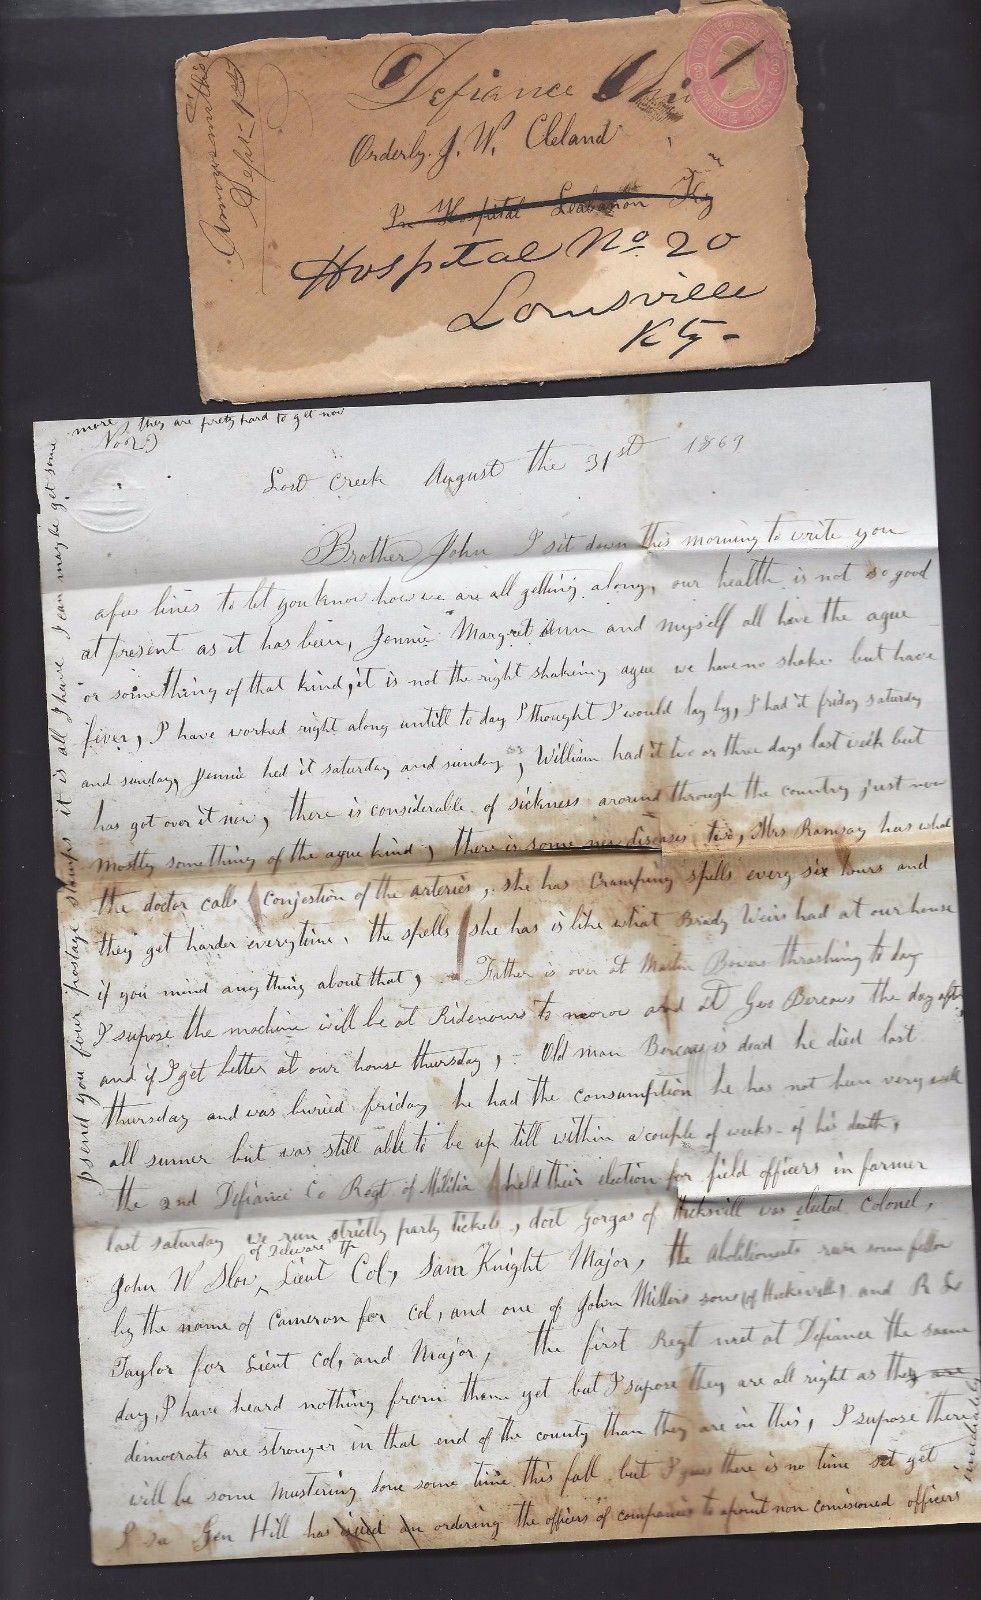 Defiance Ohio
UNITED STATES
THREE CENTS
Orderly. J. W. Cleland
In Hospital Leabanon Ky
Hospital No. 20
Louisville
Ky-
Answered
Sept
more, they are pretty hard to get now
No 25
Lost Creek August the 31st 1869
Brother John I sit down this morning to write you
a few lines to let you know how we are all getting along, our health is not so good
at present as it has been, Jennie Margret Ann and myself all have the ague
or something of that kind, it is not the right shakeing ague we have no shake but have
fiver, I have worked right along untill to day I thought I would lay by, I had it friday saturday
and sunday, Jennie hed it saturday and sunday, William had it two or three days last week but
has got over it now, there is considerable of sickness around through the country just now
mostly something of the ague kind, there is some new diseases two, Mrs Ramsay has what
the doctor calls conjestion of the arteries, she has cramping spells every six hours and
they get harder everytime. the spells she has is like what Brady Weirs had at our house
if you mind anything about that, - Father is over at Martin Bowers thrashing to day
I supose the machine will be at Ridenours to morow and at Geo Bercaws the day after,
and if I get better at our house thursday, - Old man Bercaw is dead he died last
thursday and was buried friday he had the consumption he has not been very well
all sumer but was still able to be up till within a couple of weeks of his death,
the 2nd Defiance Co Regt of Militia held their election for field officers in farmer
last saturday we run strictly party tickets, doct Gorgas of Hicksville was elected Colonel,
of Delaware Tp
John W Slow, Lieut Col, Sam Knight Major, the Abolitionests run some fellow
by the name of Cameron for col, and one of John Millers sons (of Hicksville) and R
Taylor for Lieut Col, and Major, the first Regt met at Defiance the same
day, I have heard nothing from them yet but I supose they are all right as they are
democrats are stronger in that end of the county than they are in this, I supose there
will be some mustering done some time this fall but I guess there is no time set yet
I se Gen Hill has isued an ordering the officers of companies to apoint non comisioned officers
imediately
I send you four postage stamps it is all I have I can maybe get some